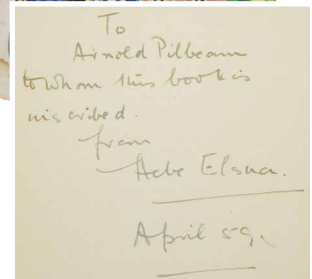 To
Arnold Pilbeam
to whom this book is
inscribed.
from
Hebe Elsna.
April 59.